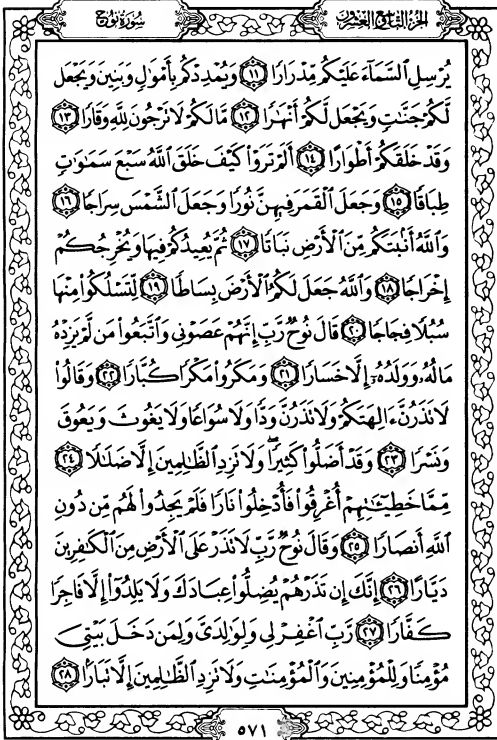 الجزء التاسع والعشرون سورة نوح
يُرْسِلِ ٱلسَّمَآءَ عَلَيْكُم مِّدْرَارًا ﴿١١﴾ وَيُمْدِدْكُم بِأَمْوَٰلٍ وَبَنِينَ وَيَجْعَل
لَّكُمْ جَنَّٰتٍ وَيَجْعَل لَّكُمْ أَنْهَٰرًا ﴿١٢﴾ مَّا لَكُمْ لَا تَرْجُونَ لِلَّهِ وَقَارًا ﴿١٣﴾
وَقَدْ خَلَقَكُمْ أَطْوَارًا ﴿١٤﴾ أَلَمْ تَرَوْا۟ كَيْفَ خَلَقَ ٱللَّهُ سَبْعَ سَمَٰوَٰتٍ
طِبَاقًا ﴿١٥﴾ وَجَعَلَ ٱلْقَمَرَ فِيهِنَّ نُورًا وَجَعَلَ ٱلشَّمْسَ سِرَاجًا ﴿١٦﴾
وَٱللَّهُ أَنۢبَتَكُم مِّنَ ٱلْأَرْضِ نَبَاتًا ﴿١٧﴾ ثُمَّ يُعِيدُكُمْ فِيهَا وَيُخْرِجُكُمْ
إِخْرَاجًا ﴿١٨﴾ وَٱللَّهُ جَعَلَ لَكُمُ ٱلْأَرْضَ بِسَاطًا ﴿١٩﴾ لِّتَسْلُكُوا۟ مِنْهَا
سُبُلًا فِجَاجًا ﴿٢٠﴾ قَالَ نُوحٌ رَّبِّ إِنَّهُمْ عَصَوْنِى وَٱتَّبَعُوا۟ مَن لَّمْ يَزِدْهُ
مَالُهُۥ وَوَلَدُهُۥٓ إِلَّا خَسَارًا ﴿٢١﴾ وَمَكَرُوا۟ مَكْرًا كُبَّارًا ﴿٢٢﴾ وَقَالُوا۟
لَا تَذَرُنَّ ءَالِهَتَكُمْ وَلَا تَذَرُنَّ وَدًّا وَلَا سُوَاعًا وَلَا يَغُوثَ وَيَعُوقَ
وَنَسْرًا ﴿٢٣﴾ وَقَدْ أَضَلُّوا۟ كَثِيرًا ۖ وَلَا تَزِدِ ٱلظَّٰلِمِينَ إِلَّا ضَلَٰلًا ﴿٢٤﴾
مِّمَّا خَطِيٓـَٰٔتِهِمْ أُغْرِقُوا۟ فَأُدْخِلُوا۟ نَارًا فَلَمْ يَجِدُوا۟ لَهُم مِّن دُونِ
ٱللَّهِ أَنصَارًا ﴿٢٥﴾ وَقَالَ نُوحٌ رَّبِّ لَا تَذَرْ عَلَى ٱلْأَرْضِ مِنَ ٱلْكَٰفِرِينَ
دَيَّارًا ﴿٢٦﴾ إِنَّكَ إِن تَذَرْهُمْ يُضِلُّوا۟ عِبَادَكَ وَلَا يَلِدُوٓا۟ إِلَّا فَاجِرًا
كَفَّارًا ﴿٢٧﴾ رَّبِّ ٱغْفِرْ لِى وَلِوَٰلِدَىَّ وَلِمَن دَخَلَ بَيْتِىَ
مُؤْمِنًا وَلِلْمُؤْمِنِينَ وَٱلْمُؤْمِنَٰتِ وَلَا تَزِدِ ٱلظَّٰلِمِينَ إِلَّا تَبَارًۢا ﴿٢٨﴾
٥٧١